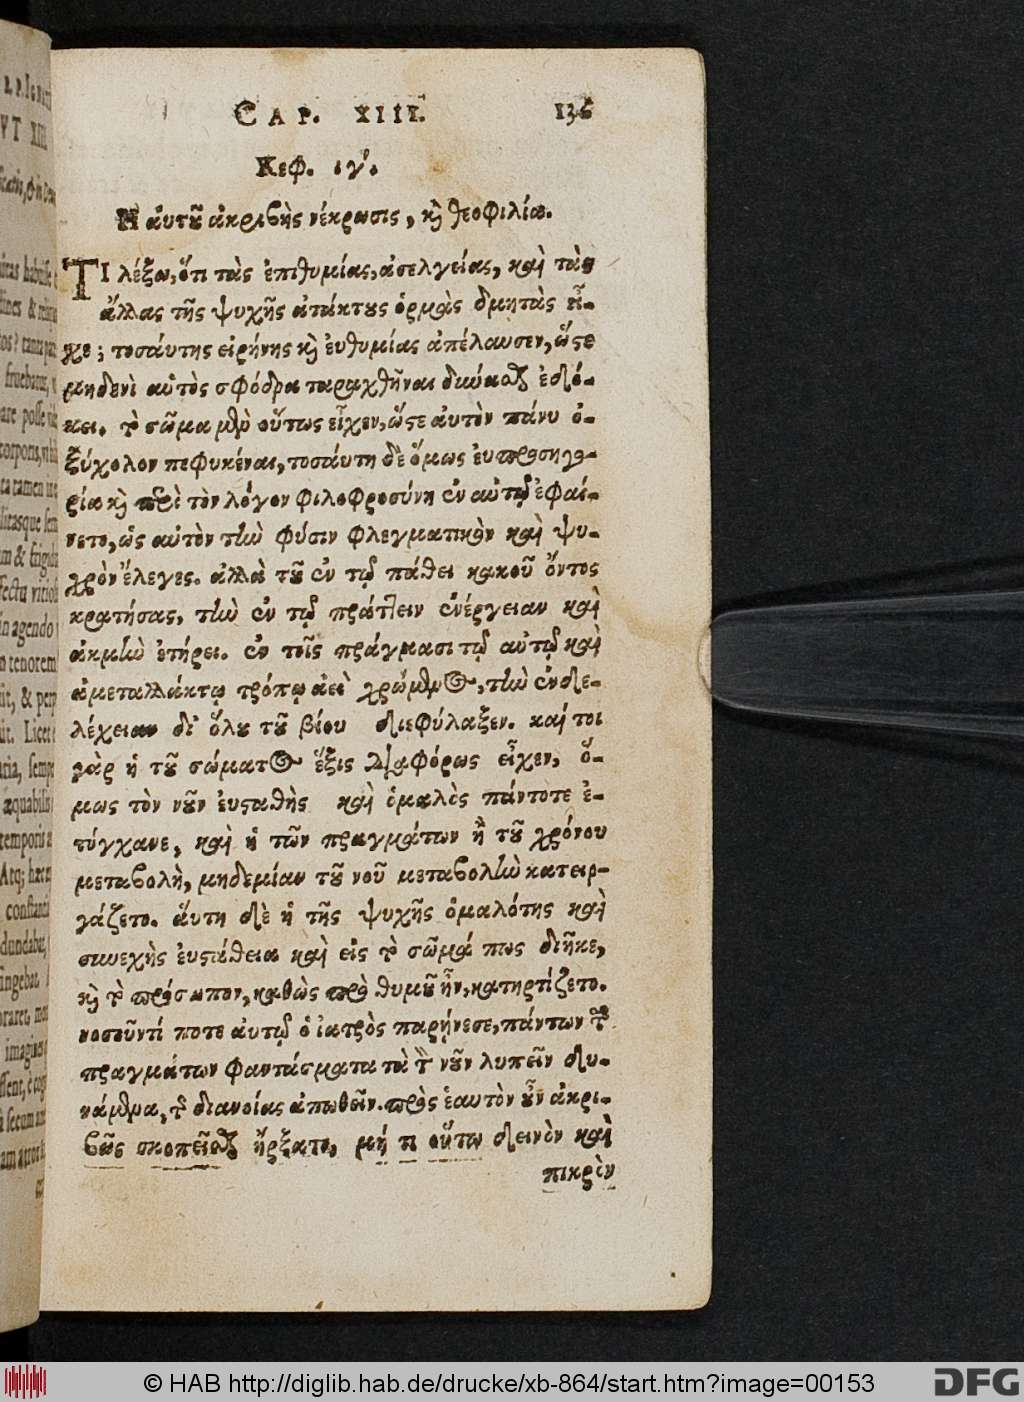 CAP. XIII. 136
Κεφ. ιγ'.
Η ἀυτοῦ ἀκριβὴς νέκρωσις, καὶ θεοφιλία.
ΤΙ λέξω, ὅτι τὰς ἐπιθυμίας, ἀσελγείας, καὶ τὰς
ἄλλας τῆς ψυχῆς ἀτάκτους ὁρμὰς δμητὰς εἶ-
χε; τοσάυτης εἰρήνης καὶ ἐυθυμίας ἀπέλαυσεν, ὥστε
μηδενὶ αὐτὸς σφόδρα ταραχθῆναι δύνασθαι ἐδό-
κει. τὸ σῶμα μὲν οὕτως εἶχεν, ὥστε ἀυτὸν πάνυ ὀ-
ξύχολον πεφυκέναι, τοσάυτη δὲ ὅμως ἐυπροσηγο-
ρία καὶ περὶ τὸν λόγον φιλοφροσύνη ἐν αὐτῷ ἐφαί-
νετο, ὡς αὐτὸν τὴν φύσιν φλεγματικὸν καὶ ψυ-
χρὸν ἔλεγες. ἀλλὰ τοῦ ἐν τῷ πάθει κακοῦ ὄντος
κρατήσας, τὴν ἐν τῷ πράττειν ἐνέργειαν καὶ
ἀκμὴν ἐτήρει. ἐν τοῖς πράγμασι τῷ αὐτῷ καὶ
ἀμεταλλάκτῳ τρόπῳ ἀεὶ χρώμενος, τὴν ἐνδε-
λέχειαν δι' ὅλου τοῦ βίου διεφύλαξεν. καί τοι
γὰρ ἡ τοῦ σώματος ἕξις διαφόρως εἶχεν, ὅ-
μως τὸν νοῦν ἐυσταθὴς καὶ ὁμαλὸς πάντοτε ἐ-
τύγχανε, καὶ ἡ τῶν πραγμάτων ἢ τοῦ χρόνου
μεταβολὴ, μηδεμίαν τοῦ νοῦ μεταβολὴν κατειρ-
γάζετο. ἅυτη δὲ ἡ τῆς ψυχῆς ὁμαλότης καὶ
συνεχὴς ἐυστάθεια καὶ εἰς τὸ σῶμά πως διῆκε,
καὶ τὸ πρόσωπον, καθὼς πρὸ θυμοῦ ἦν, κατηρτίζετο.
νοσοῦντί ποτε ἀυτῷ ὁ ἰατρὸς παρῄνεσε, πάντων τῶν
πραγμάτων φαντάσματα τὰ τὸν νοῦν λυπεῖν δυ-
νάμενα, τῆς διανοίας ἀπωθεῖν. πρὸς ἑαυτὸν οὖν ἀκρι-
βῶς σκοπεῖσθαι ἤρξατο, μή τι οὕτω δεινὸν καὶ
πικρὸν
© HAB http://diglib.hab.de/drucke/xb-864/start.htm?image=00153
DFG